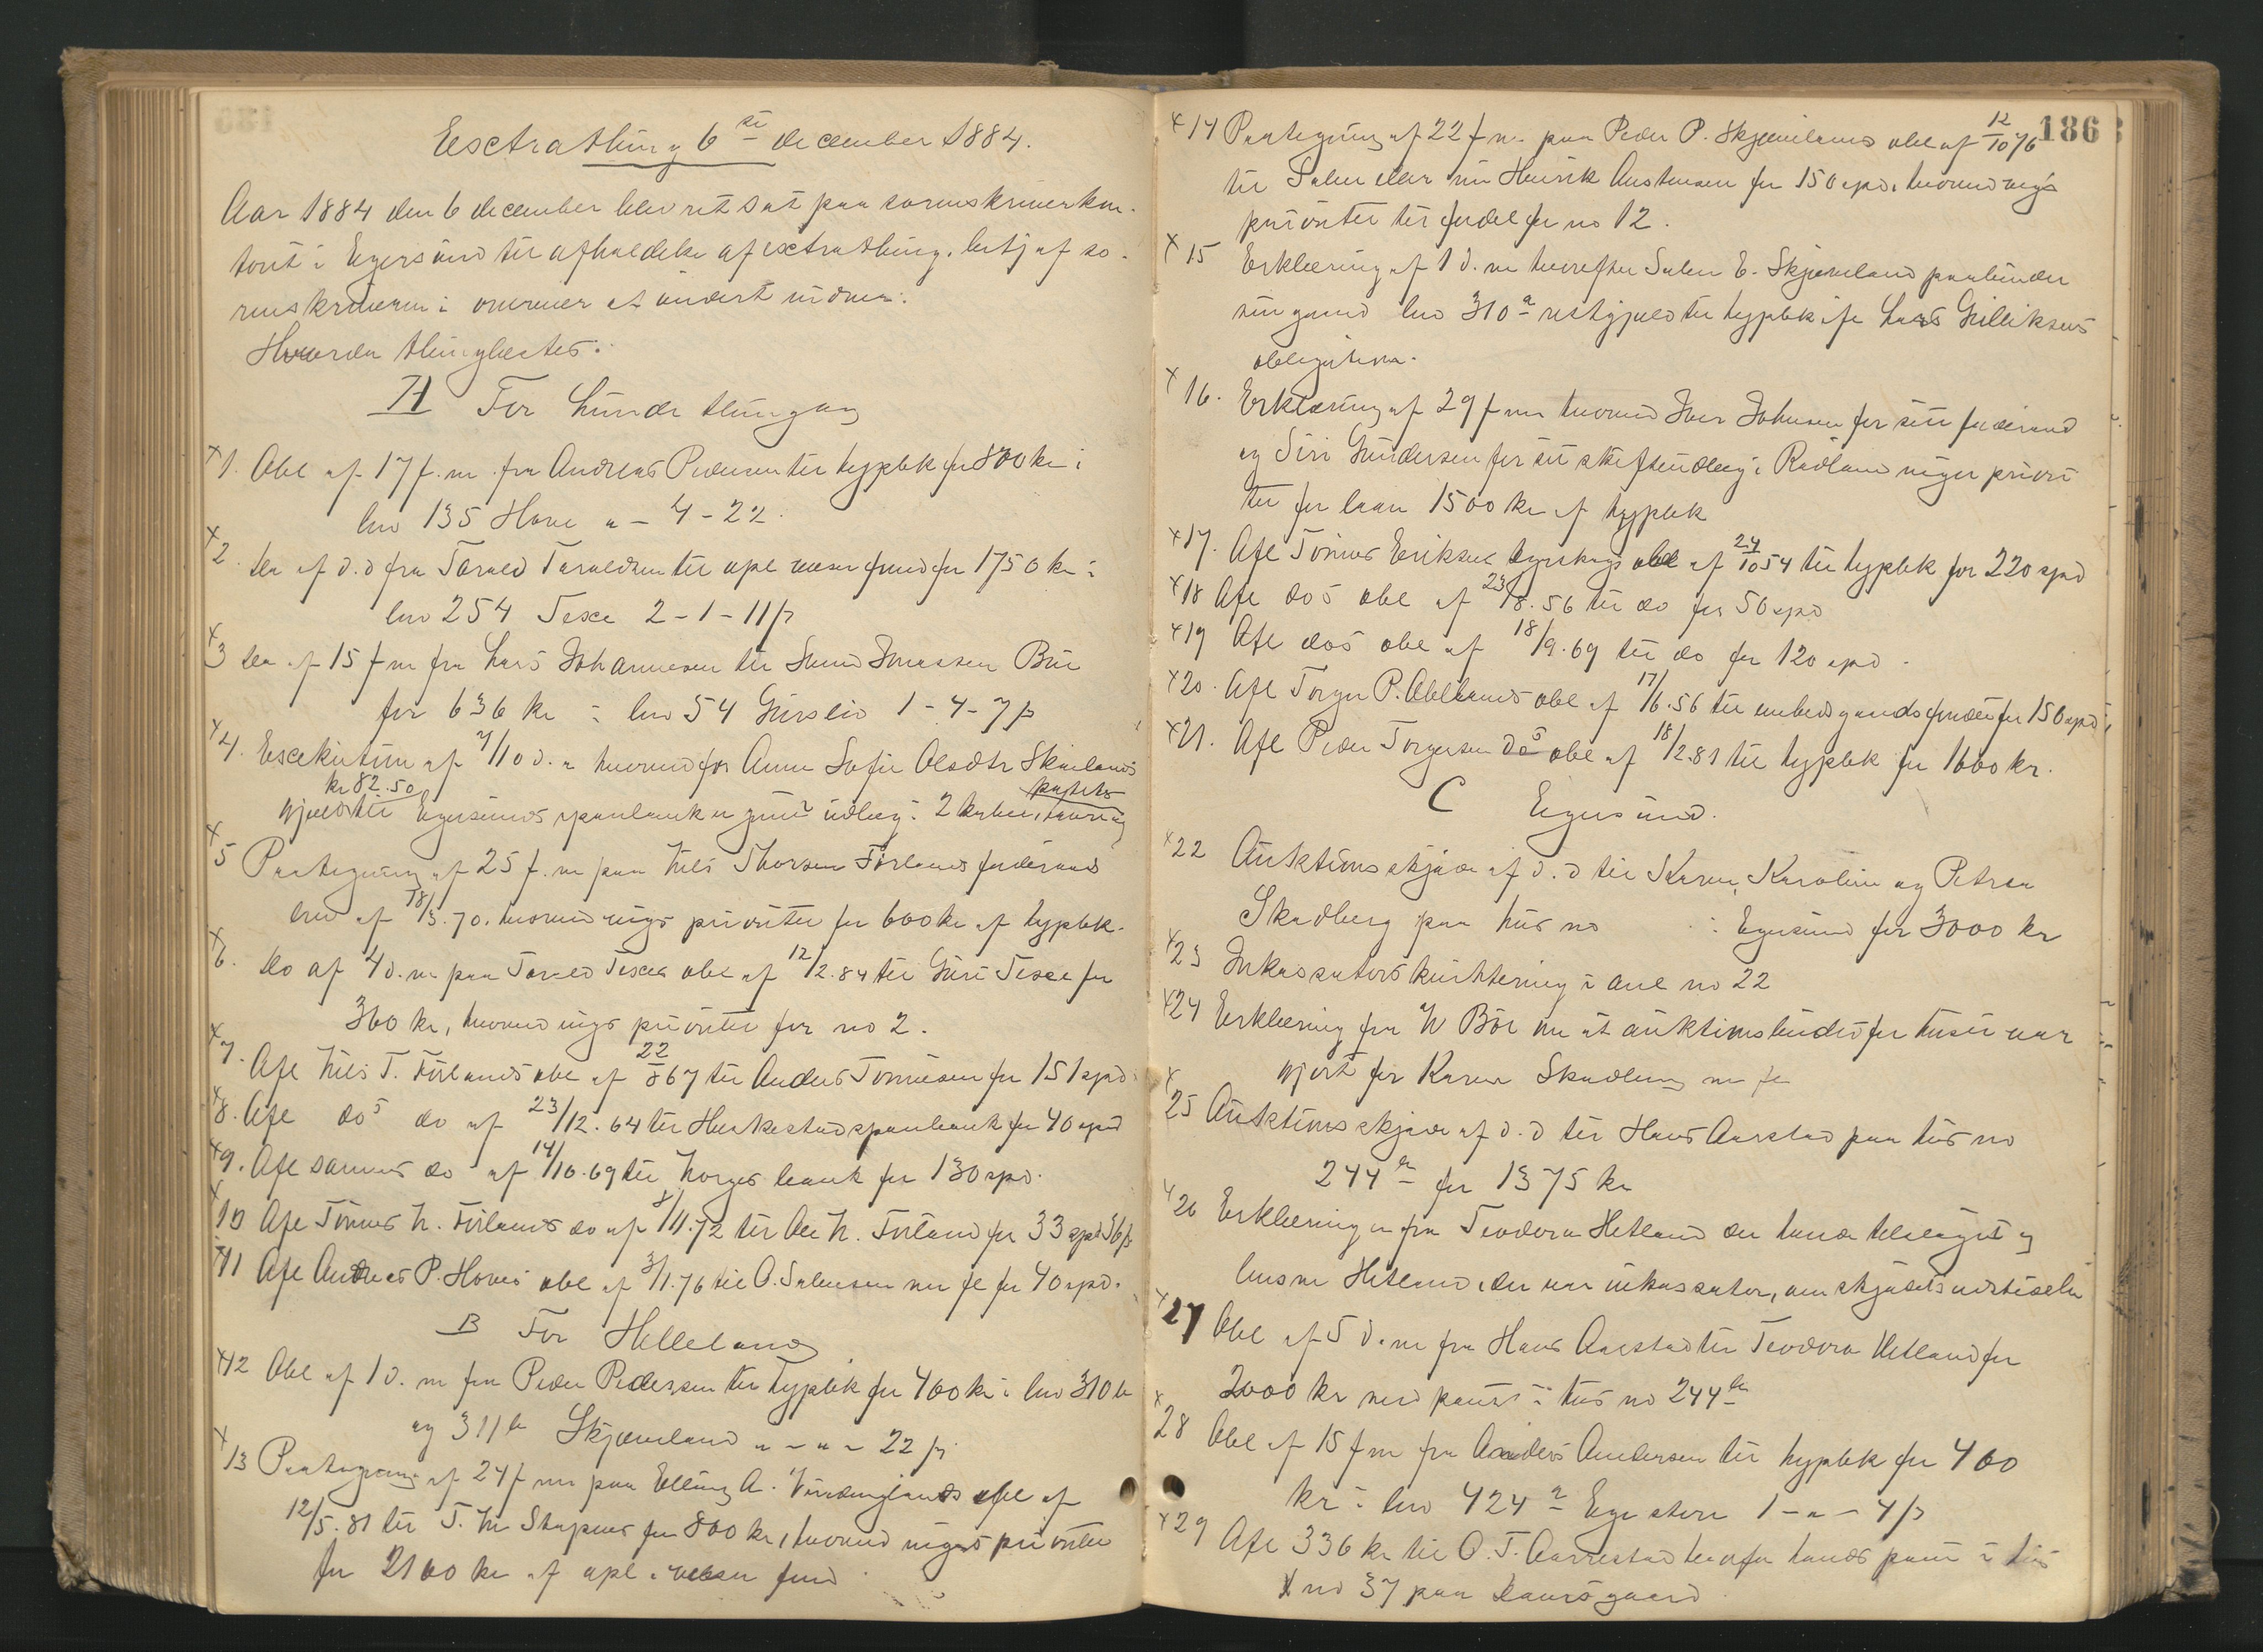 Eextrathing 6te december 1884.
Aar 1884 den 6 december blev ret sat paa sorenskriverkon-
toret i Egersund til afholdelse af extrathing, betj af so-
renskriveren i overvær af undert vidner.
Hvorda thinglæstes:
A For Lunde thinglag
x1. Obl af 17 f. m. fra Andreas Pedersen til hypbk for 800 kr i
lno 135 Hove " - 4 - 22.
x2. do af d.d fra Tarald Taraldsen til opl væsen fond for 1750 kr i
lno 254 Texe 2 - 1 - 11 p
x3 do af 15 f m fra Lars Johannesen til Svend Jonassen Bue
for 636 kr i lno 54 Gursli 1 - 4 - 7 p
x4. Execution af 7/10 d. a hvorved for Anne Sofie Olsdtr Skaalands
kr 82.50
gjæld til Egersunds sparebank er gjort udlæg i 2 kuber,
x5 Paategning af 25 f. m paa Nils Thorsen Förlands föderaads
brev af 18/3.70. hvorved viges prioritet for 600 kr af hypbk.
x6. do af 4 d. m paa Tarald Texes obl af 12/2.84 til Guri Texe for
360 kr, hvorved viges prioritet for no 2.
x7. Afl Nils T. Förlands obl af 22/8 67 til Anders Tönnesen for 151 spd.
x8. Afl dos do af 23/12.64 til Heskestad sparebank for 40 spd
x9. Afl sammes do af 14/10.69 til Norges bank for 130 spd.
x10 Afl Tönnes N. Förlands do af 8/11.72 til Ole N. Förland for 33 spd 36 p
x11 Afl Andreas P. Hoves obl af 3/1.76 til O. Salvesen m fl for 40 spd.
B For Helleland
x12 Obl af 1 d. m fra Peder Pedersen til hypbk for 400 kr i lno 310 b
og 311 b Skjæveland " - " - 22 p
x13 Paategning af 24 f m paa Elling A. obl af
12/5.81 til T. M Stapnes for 800 kr, hvorved viges prioritet
for 2100 kr af opl.væsen fond
186
x14 Paategning af 22 f m. paa Peder P. Skjævelands obl af 12/10 76
til Salve eller nu Henrik Austensen for 150 spd, hvorved viges
prioritet til fordel for no 12.
x15 Erklæring af 1 d. m hvorefter Salve E. Skjæveland paabinder
sin gaard lno 310 a restgjæld til hypbk ifl Lars Gulliksens
obligation.
x16. Erklæring af 29 f m hvorved Iver Johnsen for sitt föderaad
og Siri Gundersen for sit skifteudlæg i Rødland viger priori
tet for laan 1500 kr af hypbk
x17. Afl Tönnes Eriksens obl af 24/10 54 til hypbk for 220 spd
x18 Afl dos obl af 23/8.56 til do for 50 spd
x19 Afl dos obl af 18/9.69 til do for 120 spd.
x20. Afl Torger P. Abelands obl af 17/6.56 til embedsgaardsfondet for 150 spd
x21. Afl Peder Torgersen dos obl af 18/2.81 til hypbk for 1600 kr.
C Egersund.
x22 Auktionsskjöde af d.d til Karen, Karoline og Petrea
Skadberg paa hus no i Egersund for 3000 kr
x23 Inkassators kvittering i anl no 22
x24 Erklæring fra W Böe om at auktionsbudet for huset var
gjort for Karen Skadberg m fl
x25 Auktionsskjöde af d.d til Hans Aarstad paa hus no
244 a for 1375 kr
x26 Erklæring er fra Teodora Hetland der havde tilslaget og
Hetland, der var inkassator, om skjödets udstedelse
x27 Obl af 5 d. m fra Hans Aarstad til Teodora Hetland for
2000 kr med pant i hus no 244 a
x28 Obl af 15 f m fra Anders Andersen til hypbk for 400
kr i lno 424 a Ege store 1 - " - 4 p
x29 Afl 336 kr til O. T. Aarrestad hvorfor havdes pant i hus
no 37 paa